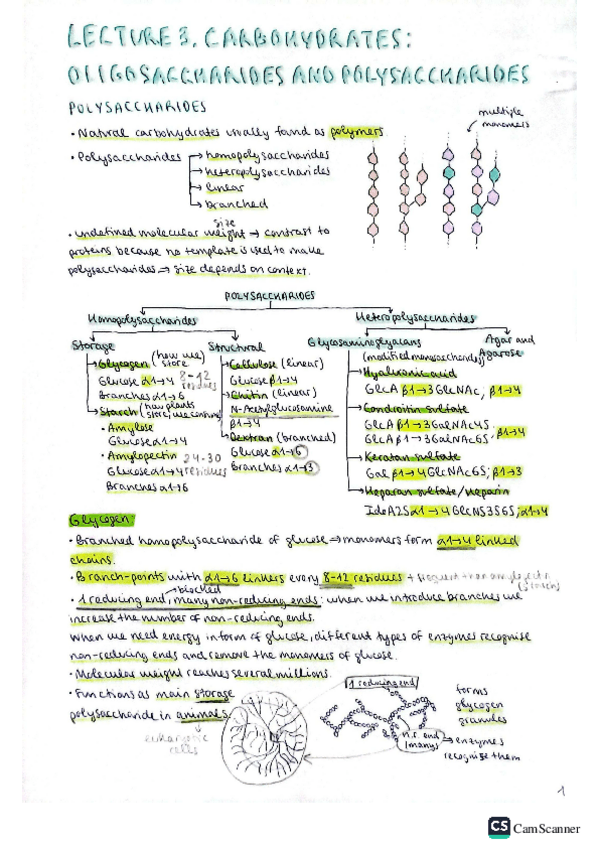 LECTURE 3. CARBOHYDRATES:
OLIGOSACCHARIDES AND POLYSACCHARIDES
POLYSACCHARIDES
multiple monomers
• Natural carbohydrates usually found as polymers
• Polysaccharides → homopolysaccharides
→ heteropolysaccharides
→ linear
→ branched
size
• undefined molecular weight → contrast to
proteins because no template is used to make
polysaccharides ⇒ size depends on context.
POLYSACCHARIDES
Homopolysaccharides
Heteropolysaccharides
Storage
→ Glycogen (how we store)
Glucose α1→4 8-12 residues
Branches α1→6
→ Starch (how plants store, we consume)
• Amylose
Glucose α1→4
• Amylopectin 24-30
Glucose α1→4 residues
Branches α1→6
Structural
→ Cellulose (linear)
Glucose β1→4
→ Chitin (linear)
N-Acetylglucosamine
β1→4
→ Dextran (branched)
Glucose α1→6
Branches α1→3
Glycosaminoglycans
(modified monosaccharides)
→ Hyaluronic acid
GlcA β1→3 GlcNAc; β1→4
→ Condroitin sulfate
GlcA β1→3 GalNAc4S;
GlcA β1→3 GalNAc6S; β1→4
→ Keratan sulfate
Gal β1→4 GlcNAc6S; β1→3
→ Heparan sulfate/Heparin
IdoA2S α1→4 GlcNS3S6S; α1→4
Agar and
Agarose
Glycogen:
• Branched homopolysaccharide of glucose ⇒ monomers form α1→4 linked
chains.
• Branch-points with α1→6 linkers every 8-12 residues
blocked
• 1 reducing end, many non-reducing ends: when we introduce branches we
increase the number of non-reducing ends.
When we need energy in form of glucose, different types of enzymes recognise
non-reducing ends and remove the monomers of glucose.
• Molecular weight reaches several millions.
• Functions as main storage
polysaccharide in animals.
eukaryotic
cells
1 reducing end
n.r. end
(many) ⇒ enzymes
recognise them
forms
glycogen
granules
1
CS CamScanner